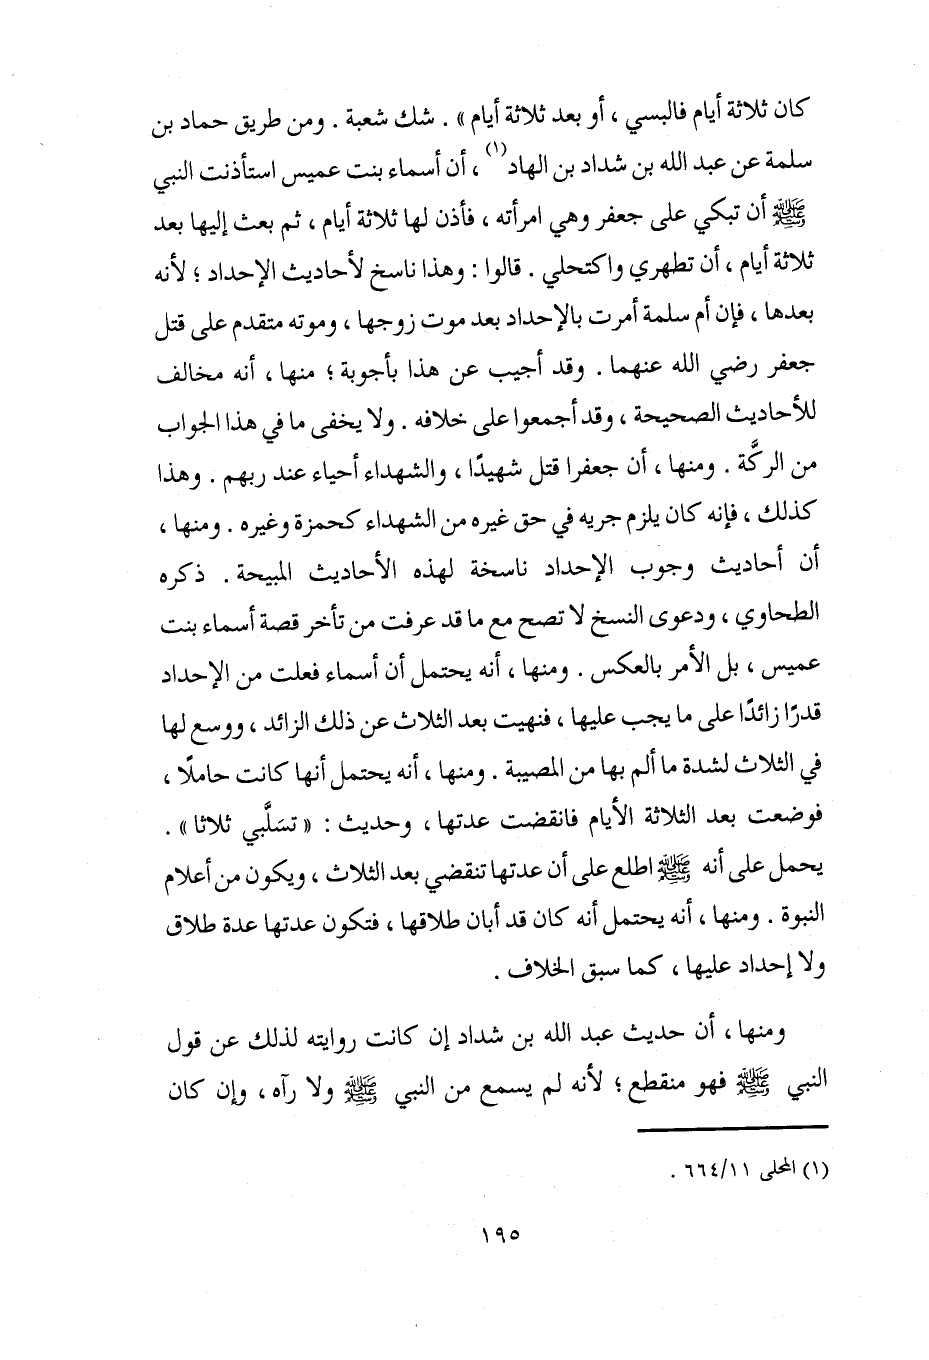 كان ثلاثة أيام فالبسي ، أو بعد ثلاثة أيام » . شك شعبة . ومن طريق حماد بن
سلمة عن عبد الله بن شداد بن الهاد(١) ، أن أسماء بنت عميس استأذنت النبي
ﷺ أن تبكي على جعفر وهي امرأته ، فأذن لها ثلاثة أيام ، ثم بعث إليها بعد
ثلاثة أيام ، أن تطهري واكتحلي . قالوا : وهذا ناسخ لأحاديث الإحداد ؛ لأنه
بعدها ، فإن أم سلمة أمرت بالإحداد بعد موت زوجها ، وموته متقدم على قتل
جعفر رضي الله عنهما . وقد أجيب عن هذا بأجوبة ؛ منها ، أنه مخالف
للأحاديث الصحيحة ، وقد أجمعوا على خلافه . ولا يخفى ما في هذا الجواب
من الركَّة . ومنها ، أن جعفرا قتل شهيدًا ، والشهداء أحياء عند ربهم . وهذا
كذلك ، فإنه كان يلزم جريه في حق غيره من الشهداء كحمزة وغيره . ومنها ،
أن أحاديث وجوب الإحداد ناسخة لهذه الأحاديث المبيحة . ذكره
الطحاوي ، ودعوى النسخ لا تصح مع ما قد عرفت من تأخر قصة أسماء بنت
عميس ، بل الأمر بالعكس . ومنها ، أنه يحتمل أن أسماء فعلت من الإحداد
قدرًا زائدًا على ما يجب عليها ، فنهيت بعد الثلاث عن ذلك الزائد ، ووسع لها
في الثلاث لشدة ما ألم بها من المصيبة . ومنها ، أنه يحتمل أنها كانت حاملًا ،
فوضعت بعد الثلاثة الأيام فانقضت عدتها ، وحديث : « تسَلَّبي ثلاثا » .
يحمل على أنه ﷺ اطلع على أن عدتها تنقضي بعد الثلاث ، ويكون من أعلام
النبوة . ومنها ، أنه يحتمل أنه كان قد أبان طلاقها ، فتكون عدتها عدة طلاق
ولا إحداد عليها ، كما سبق الخلاف .
ومنها ، أن حديث عبد الله بن شداد إن كانت روايته لذلك عن قول
النبي ﷺ فهو منقطع ؛ لأنه لم يسمع من النبي ﷺ ولا رآه ، وإن كان
(١) المحلى ١١/ ٦٦٤ .
١٩٥